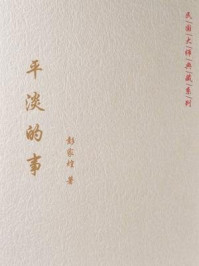 民国大师典藏系列
平淡的事
彭家煌 著